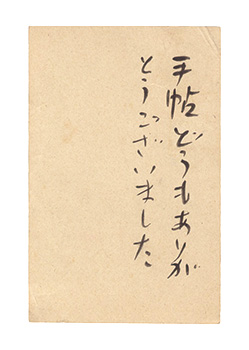 手帖どうもありが
とうございました